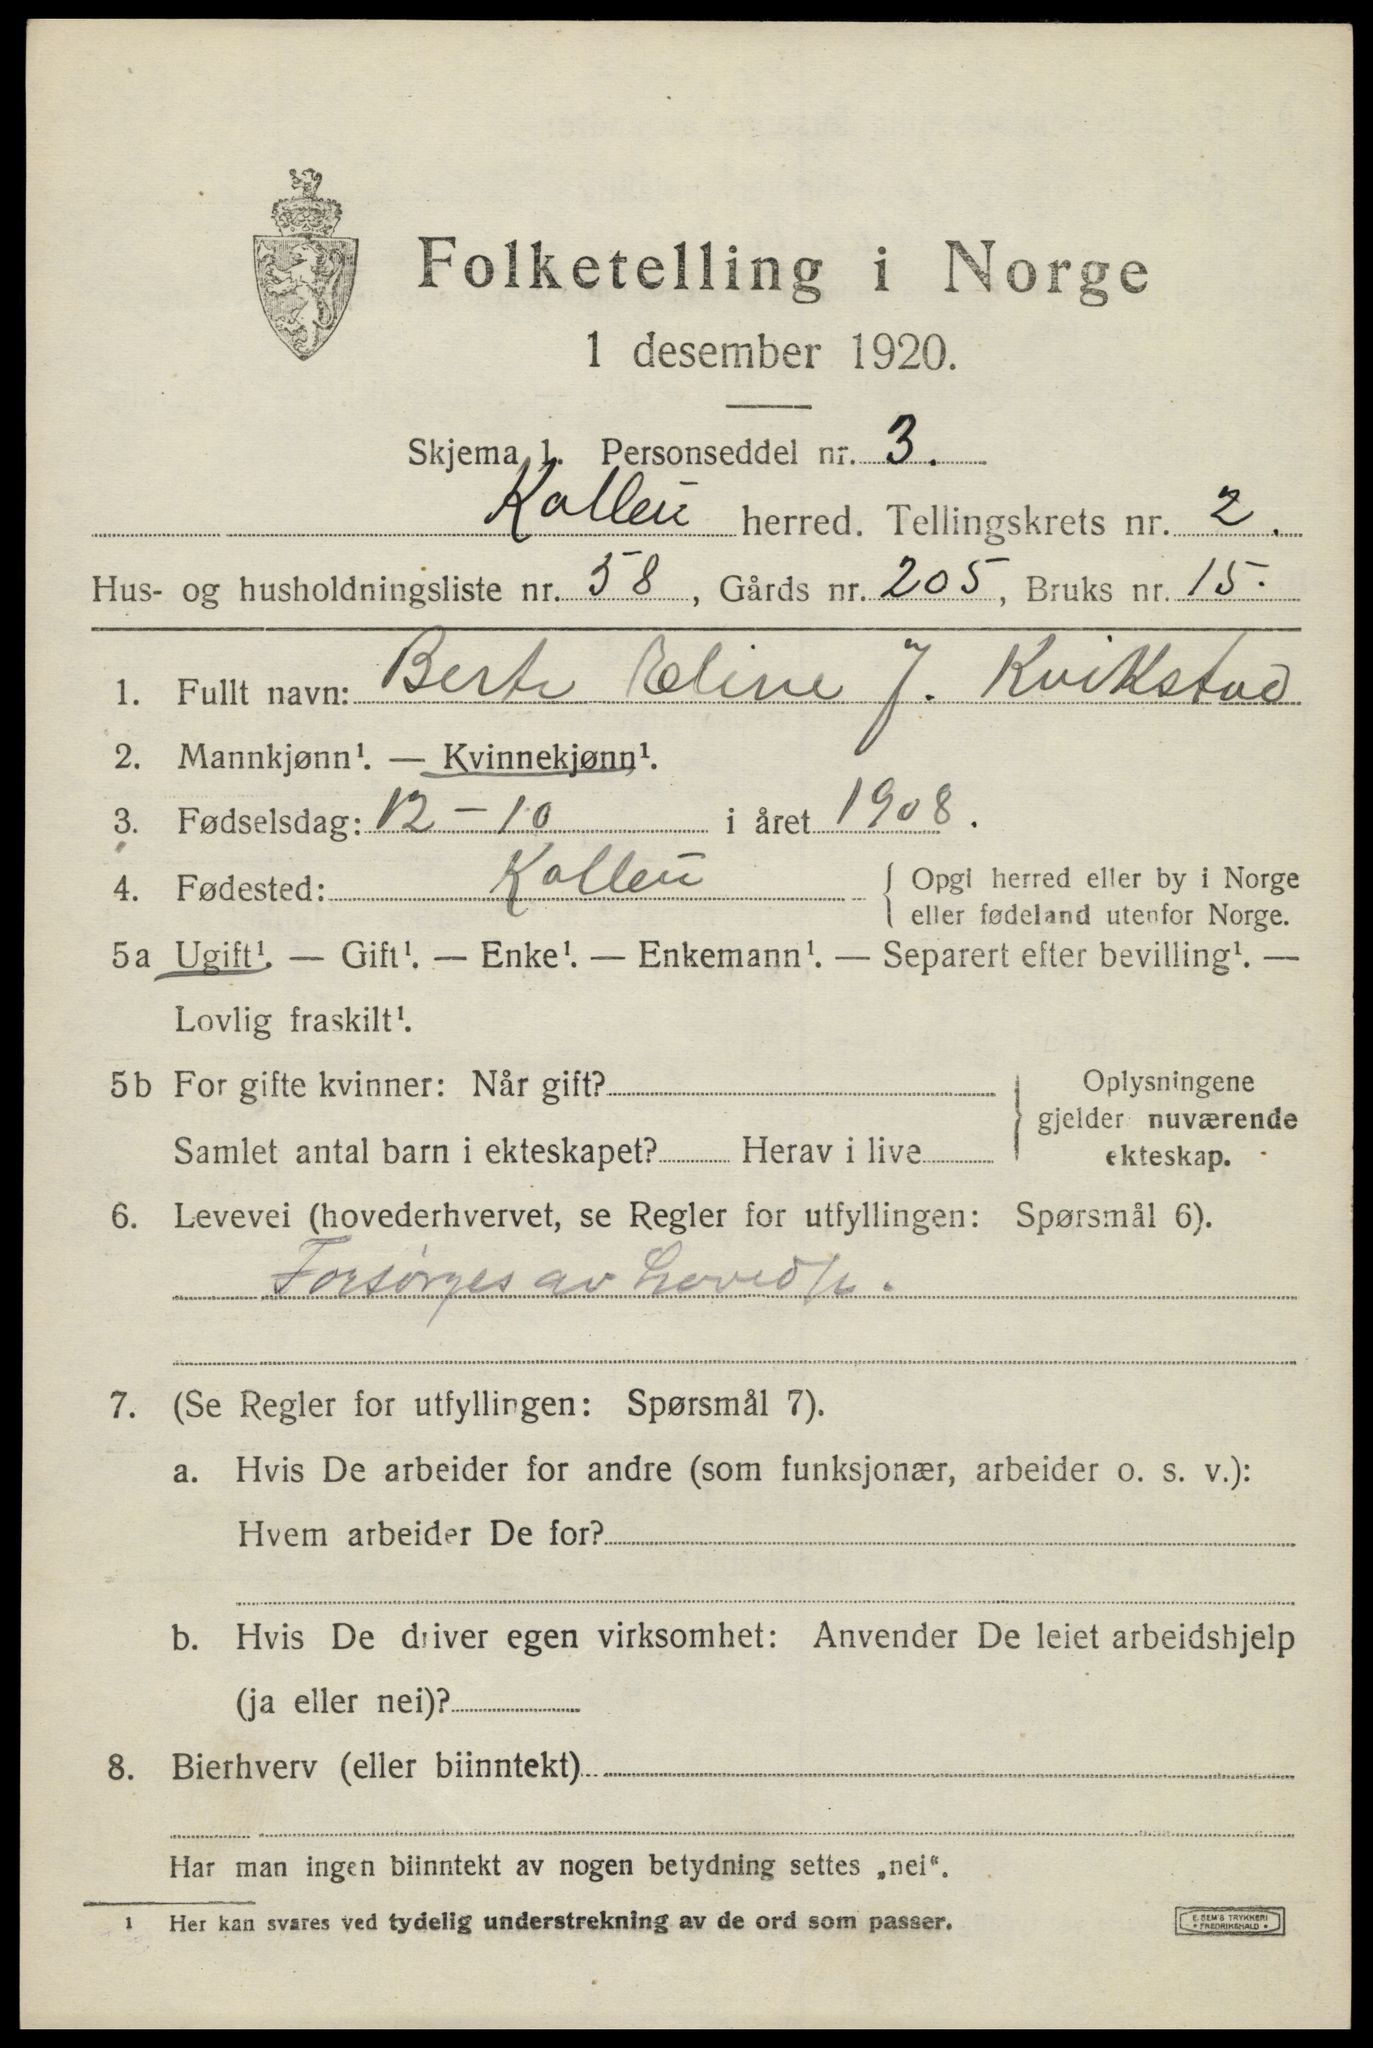 Folketelling i Norge
1 desember 1920.
Skjema 1. Personseddel nr. 3.
Kolbu herred. Tellingskrets nr. 2.
Hus- og husholdningsliste nr. 58, Gårds nr. 205, Bruks nr. 15.
1. Fullt navn: Berte Eline J. Kvikstad
2. Mannkjønn¹. — Kvinnekjønn¹.
3. Fødselsdag: 12-10 i året 1908.
4. Fødested: Kolbu { Opgi herred eller by i Norge
eller fødeland utenfor Norge.
5a Ugift¹. — Gift¹. — Enke¹. — Enkemann¹. — Separert efter bevilling¹. —
Lovlig fraskilt¹.
5b For gifte kvinner: Når gift? } Oplysningene
gjelder nuværende
Samlet antal barn i ekteskapet? Herav i live ekteskap.
6. Levevei (hovederhvervet, se Regler for utfyllingen: Spørsmål 6).
Forsørges av hovedp.
7. (Se Regler for utfyllingen: Spørsmål 7).
a. Hvis De arbeider for andre (som funksjonær, arbeider o. s. v.):
Hvem arbeider De for?
b. Hvis De driver egen virksomhet: Anvender De leiet arbeidshjelp
(ja eller nei)?
8. Bierhverv (eller biinntekt)
Har man ingen biinntekt av nogen betydning settes „nei“.
¹ Her kan svares ved tydelig understrekning av de ord som passer.
E. SEM'S TRYKKERI
• FREDRIKSHALD •